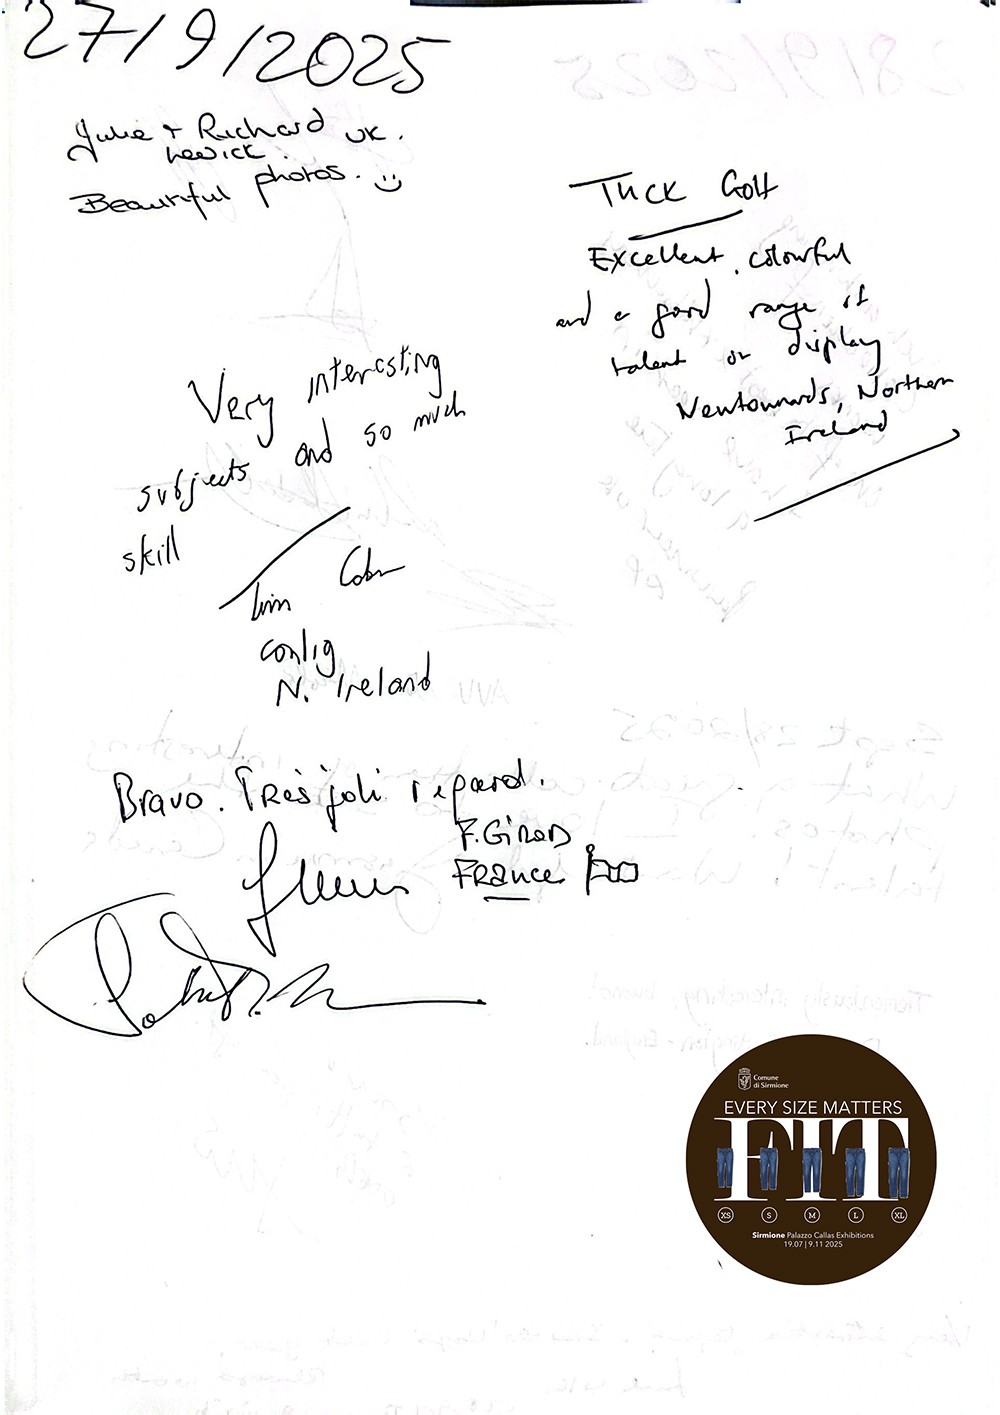 27/9/2025
Julie + Richard UK.
Lewick.
Beautiful photos. :)
TUCK Golf
Excellent, colourful
and a good range of
talent on display
Newtownards, Northern
Ireland
Very interesting
subjects and so much
skill
Tim
Conlig
N. Ireland
Bravo. Très joli regard.
F. GIRARD
FRANCE
Comune
di Sirmione
EVERY SIZE MATTERS
FIT
XS S M L XL
Sirmione Palazzo Callas Exhibitions
19.07 | 9.11 2025